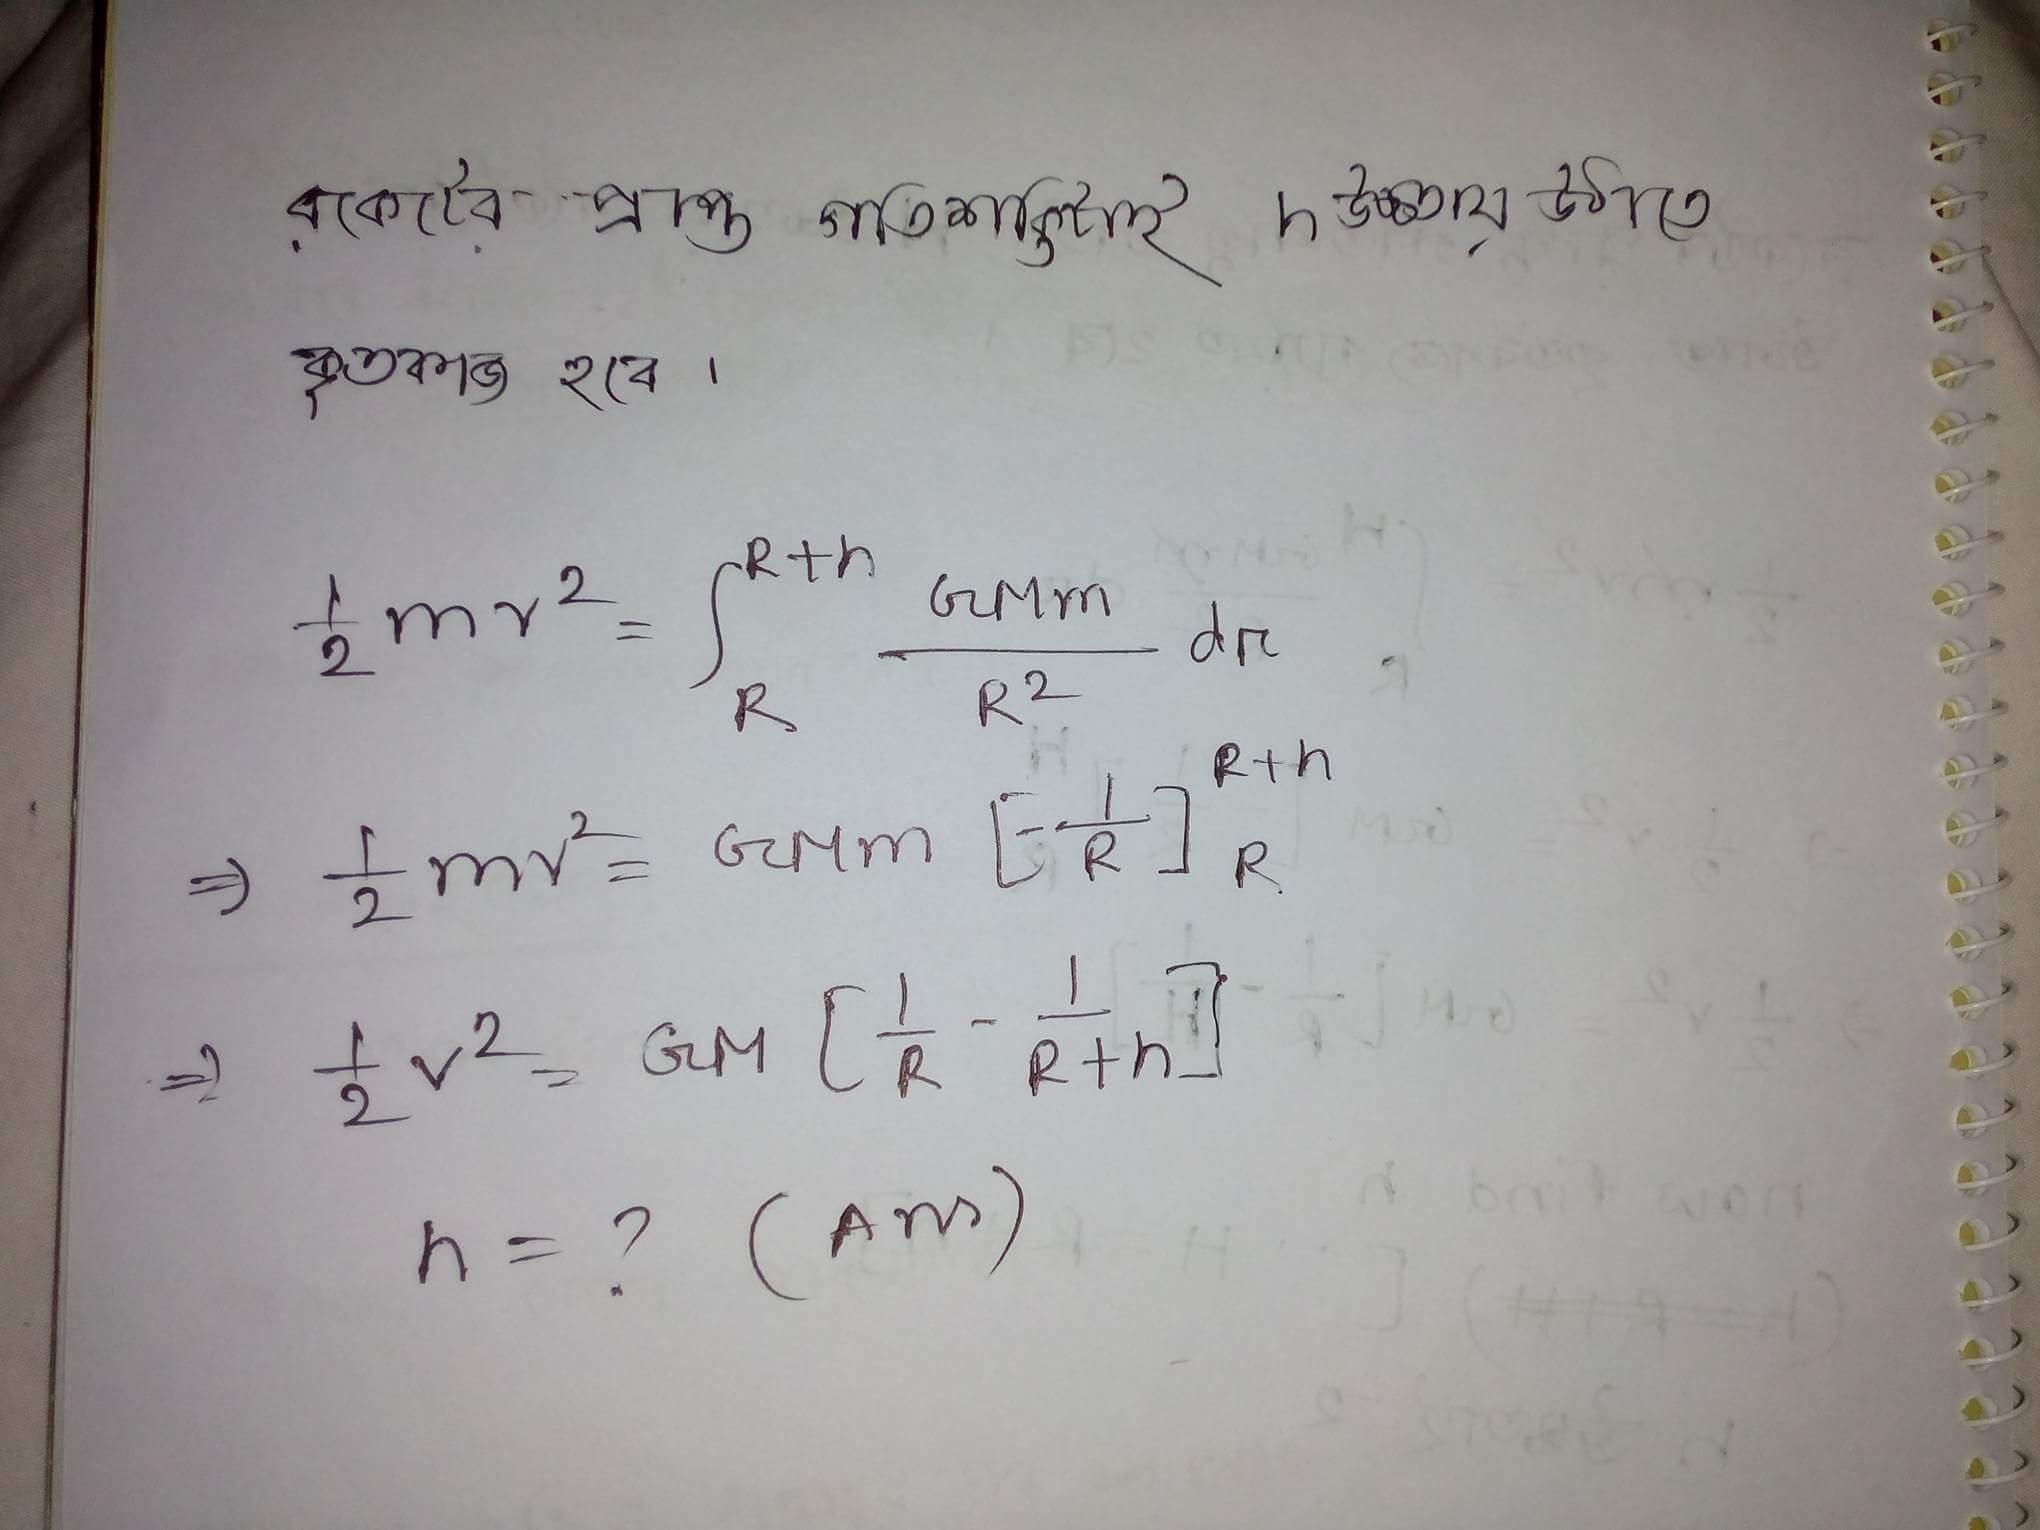 রকেটের প্রাপ্ত গতিশক্তিটাই h উচ্চতায় উঠাতে
কৃতকাজ হবে ।
½ mv² = ∫_R^{R+h} GMm / R² dr
⇒ ½ mv² = GMm [-1/R]_R^{R+h}
⇒ ½ v² = GM [1/R - 1/R+h]
h = ? (Ans)